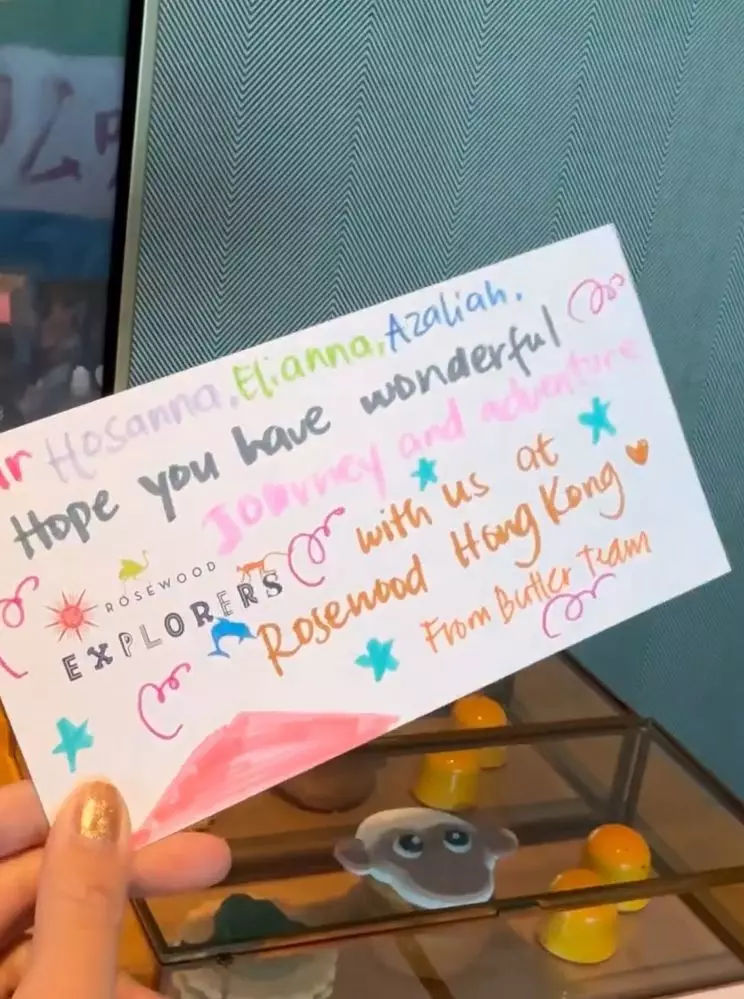 Hosanna, Elianna, Azaliah.
Hope you have wonderful
Journey and adventure
with us at
Rosewood Hong Kong
From Butler Team
ROSEWOOD
EXPLORERS